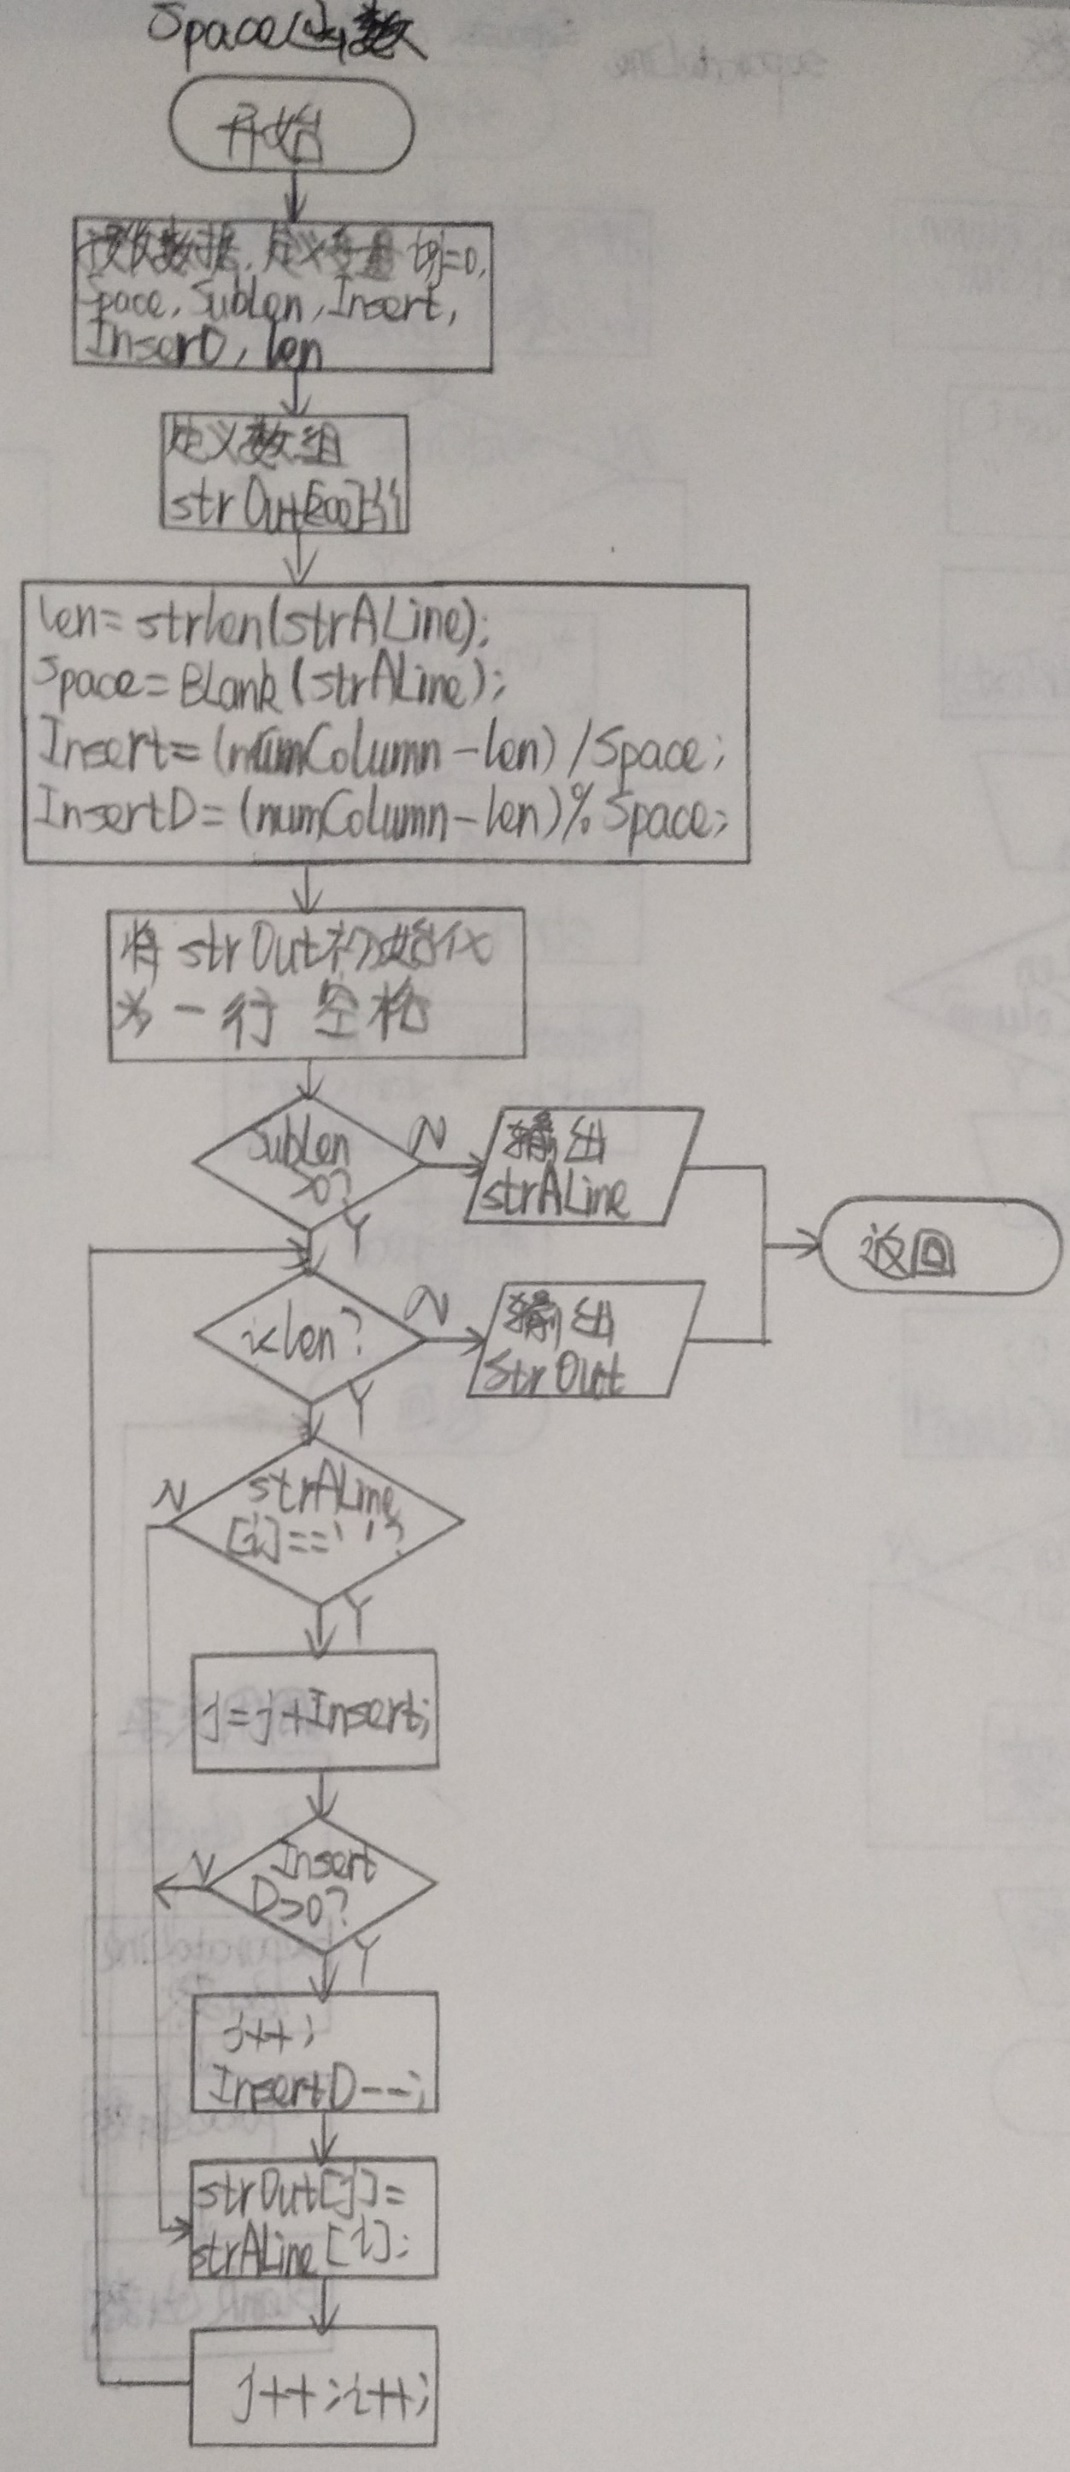 Space函数
开始
接收数据,定义变量i,j=0,
Space, SubLen, Insert,
InserD, len
定义数组
strOut[200];
len=strlen(strALine);
Space=BLank(strALine);
Insert=(numColumn-len)/Space;
InsertD=(numColumn-len)%Space;
将strOut初始化
为一行 空格
SubLen
>0?
N
输出
strALine
Y
返回
i<len?
N
输出
StrOut
Y
strALine
[i]==' '?
N
Y
j=j+Insert;
Insert
D>0?
N
Y
j++;
InsertD--;
strOut[j]=
strALine[i];
j++;i++;